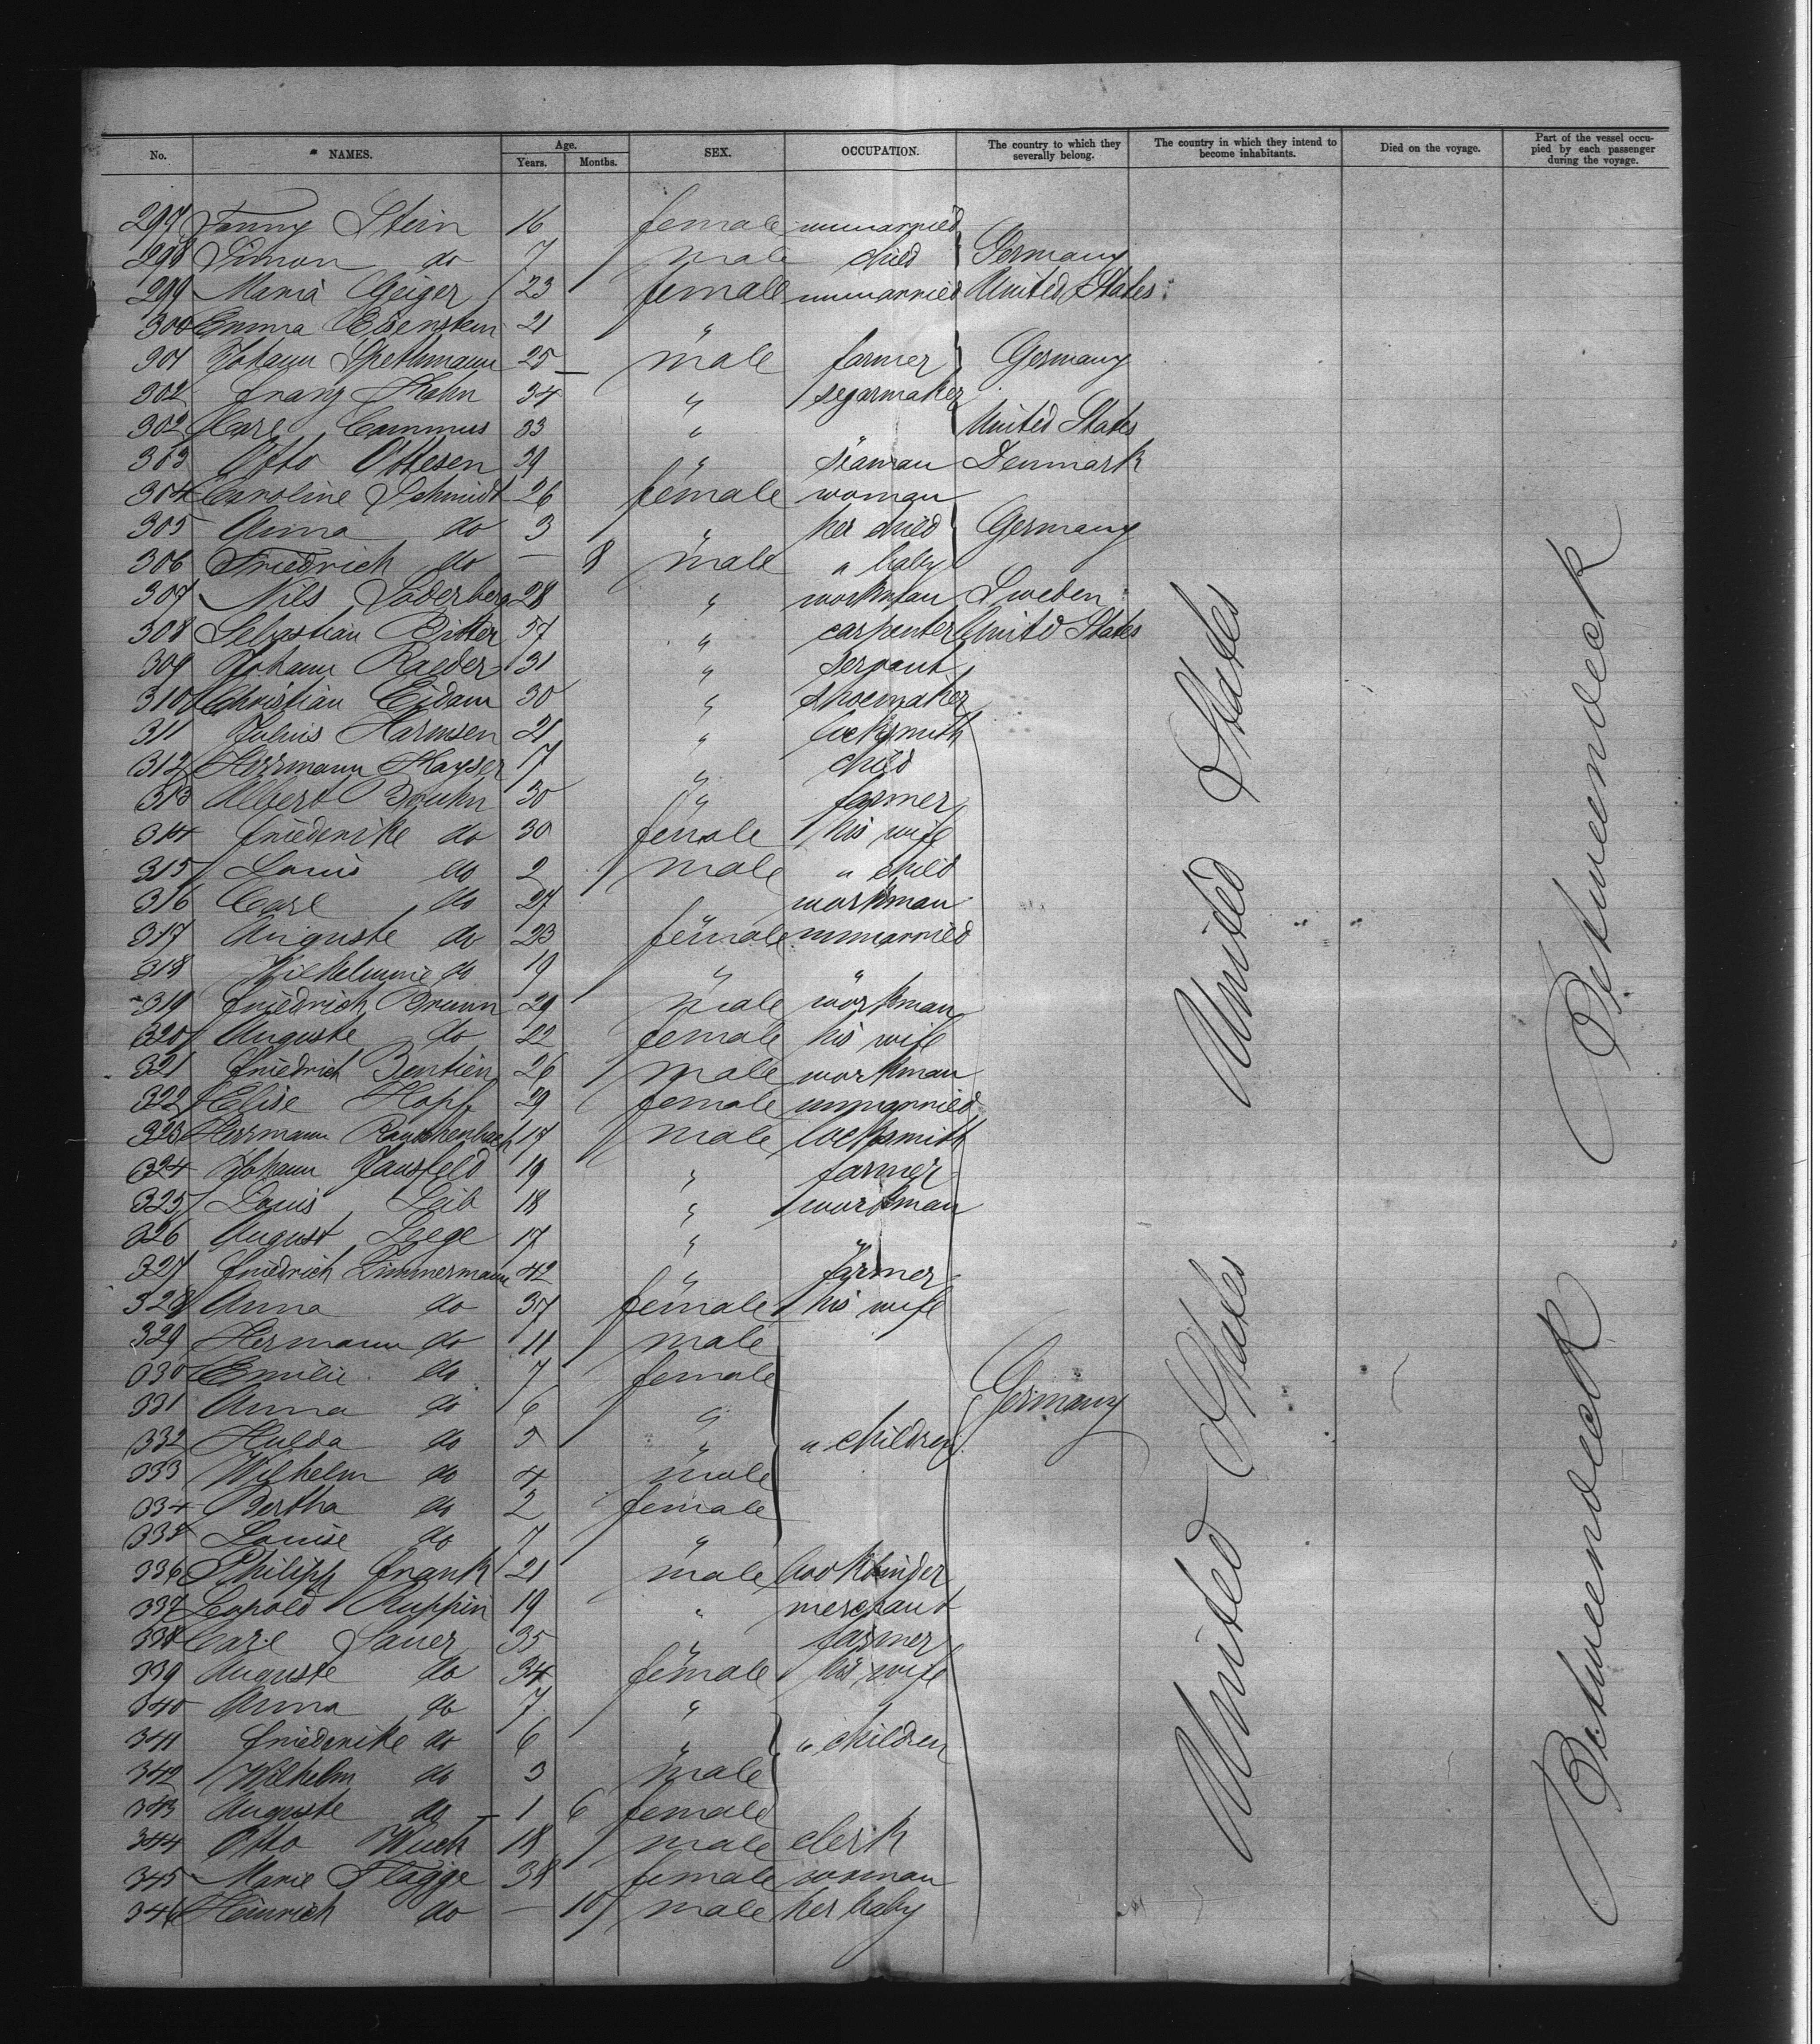 No. NAMES. Age. Years. Months. SEX. OCCUPATION. The country to which they severally belong. The country in which they intend to become inhabitants. Died on the voyage. Part of the vessel occupied by each passenger during the voyage.
297 Fanny Stein 16 female unmarried
298 Simon do 7 male child Germany
299 Maria Geiger 23 female unmarried United States
300 Emma Eisenstein 21 "
301 Johann Spethmann 25 male farmer Germany
302 Franz Hahn 34 " segarmaker
302 Carl Cammus 33 " " United States
303 Otto Ottesen 39 " seaman Denmark
304 Caroline Schmidt 26 female woman
305 Anna do 3 " her child Germany
306 Friedrich do — 8 male " baby
307 Nils Soderberg 28 " workman Sweden
308 Sebastian Ritter 37 " carpenter United States
309 Johann Raeder 31 " servant
310 Christian Eidam 30 " shoemaker
311 Julius Harmsen 21 " locksmith
312 Herrmann Kayser 7 " child
313 Albert Bruhn 30 " farmer
314 Friederike do 30 female his wife
315 Louis do 2 male " child
316 Carl do 27 " workman
317 Auguste do 23 female unmarried
318 Wilhelmine do 19 " "
319 Friedrich Brunn 29 male workman
320 Auguste do 22 female his wife
321 Friedrich Bentien 26 male workman
322 Elise Hopf 29 female unmarried
323 Herrmann Rauschenbach 17 male locksmith
324 Johann 19 " farmer
325 Louis Leib 18 " workman
326 August Leege 17 " "
327 Friedrich Zimmermann 42 " farmer
328 Anna do 37 female his wife
329 Hermann do 11 male
330 Emilie do 7 female
331 Anna do 6 " Germany
332 Hulda do 5 " " children
333 Wilhelm do 4 male
334 Bertha do 2 female
335 Louise do 7 "
336 Philipp Frank 21 male bookbinder
337 Leopold Ruppin 19 " merchant
338 Carl Sauer 35 " farmer
339 Auguste do 34 female his wife
340 Anna do 7 "
341 Friederike do 6 " " children
342 Wilhelm do 3 male
343 Auguste do 1 6 female
344 Otto 18 male clerk
345 Marie Flagge 38 female woman
346 Heinrich do — 10 male her baby
United States
United States
Betweendeck
Betweendeck